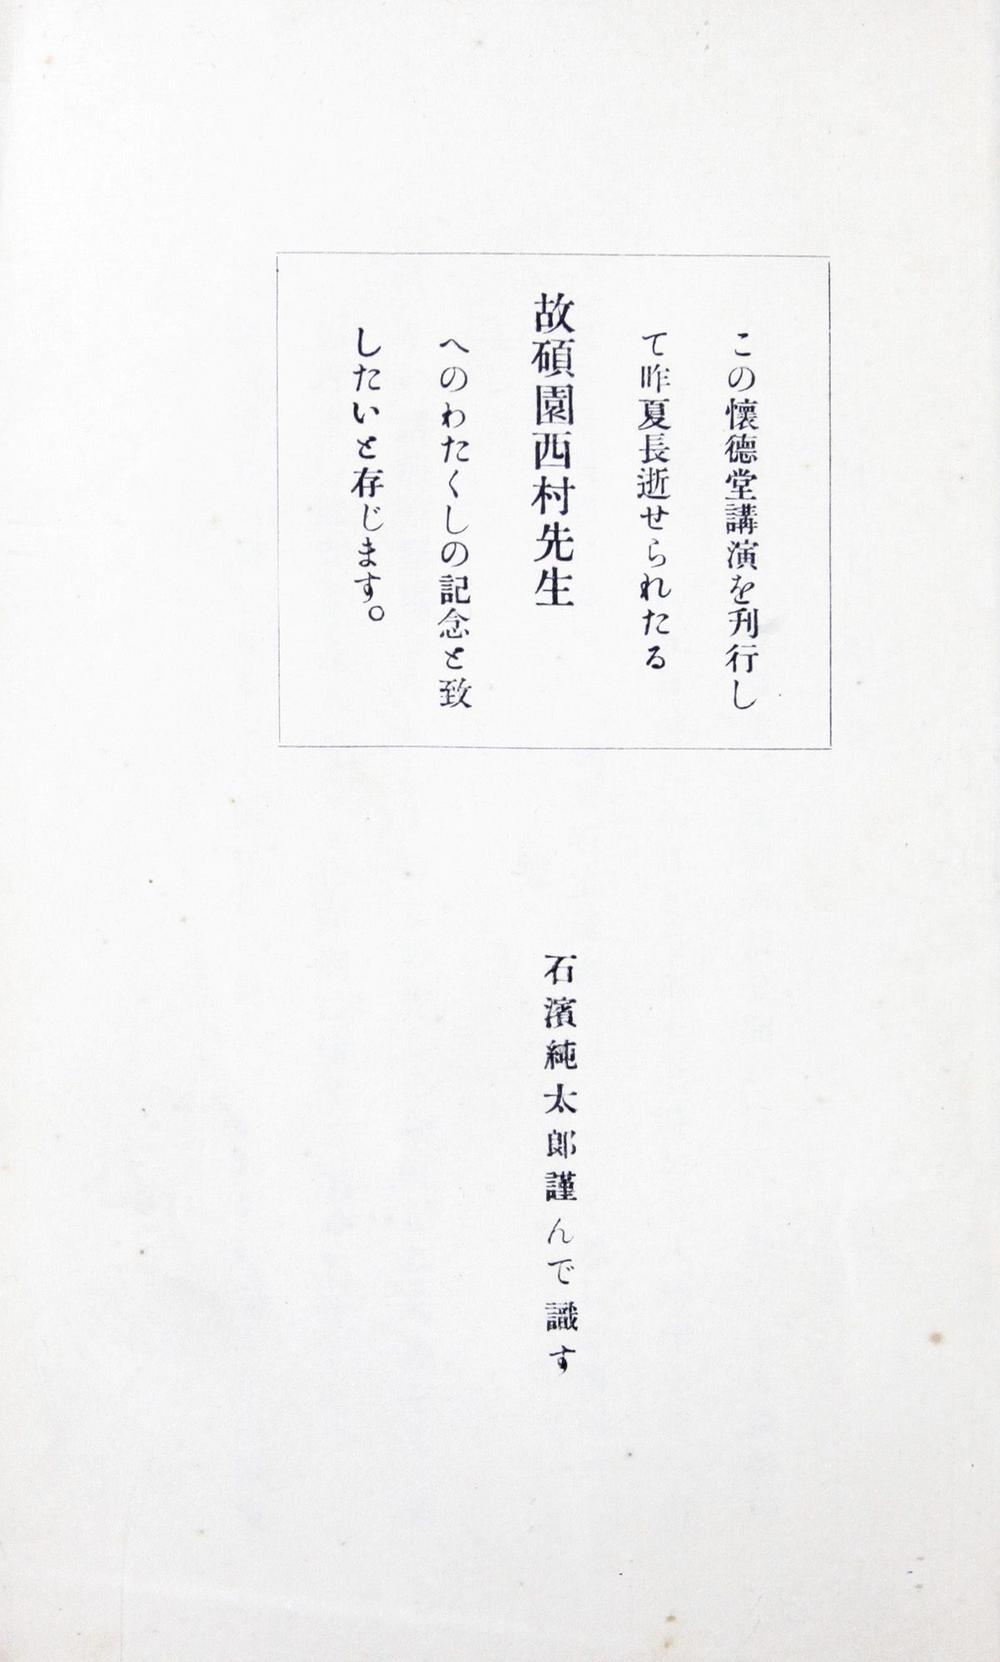 この懷德堂講演を刋行し
て昨夏長逝せられたる
故碩園西村先生
へのわたくしの記念と致
したいと存じます。
石濱純太郎謹んで識す